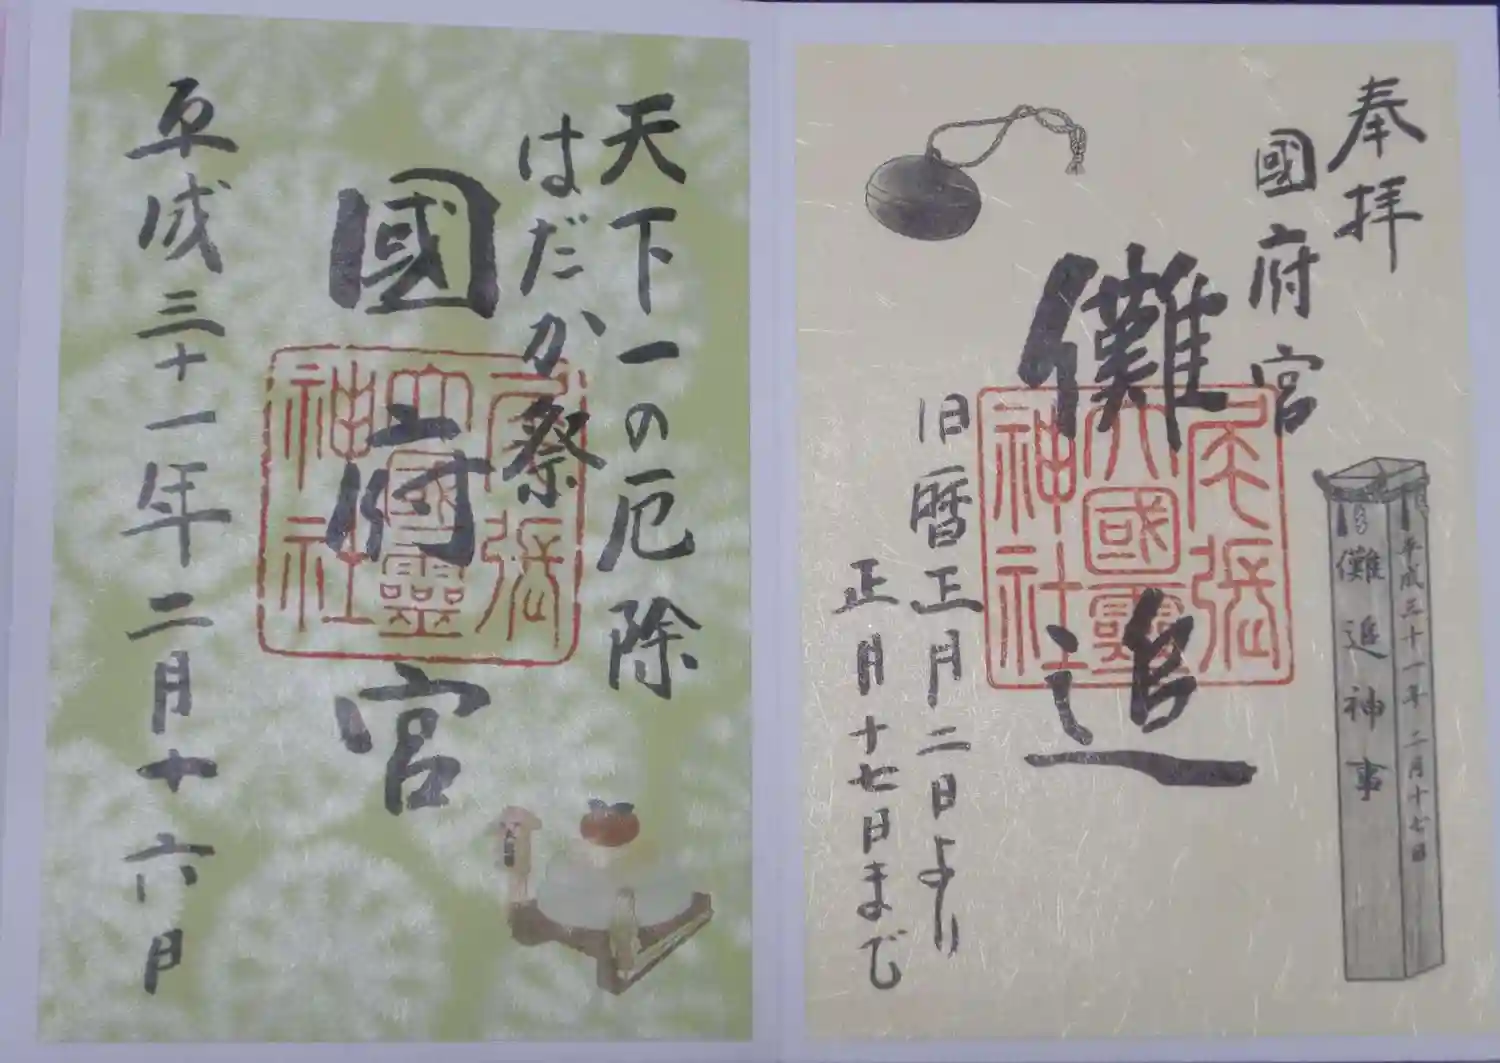 奉拝
國府宮
儺追
尾張
大國靈
神社
旧暦正月二日より
正月十七日まで
平成三十一年二月十七日
儺追神事
天下一の厄除
はだか祭
國府宮
尾張
大國靈
神社
平成三十一年二月十六日